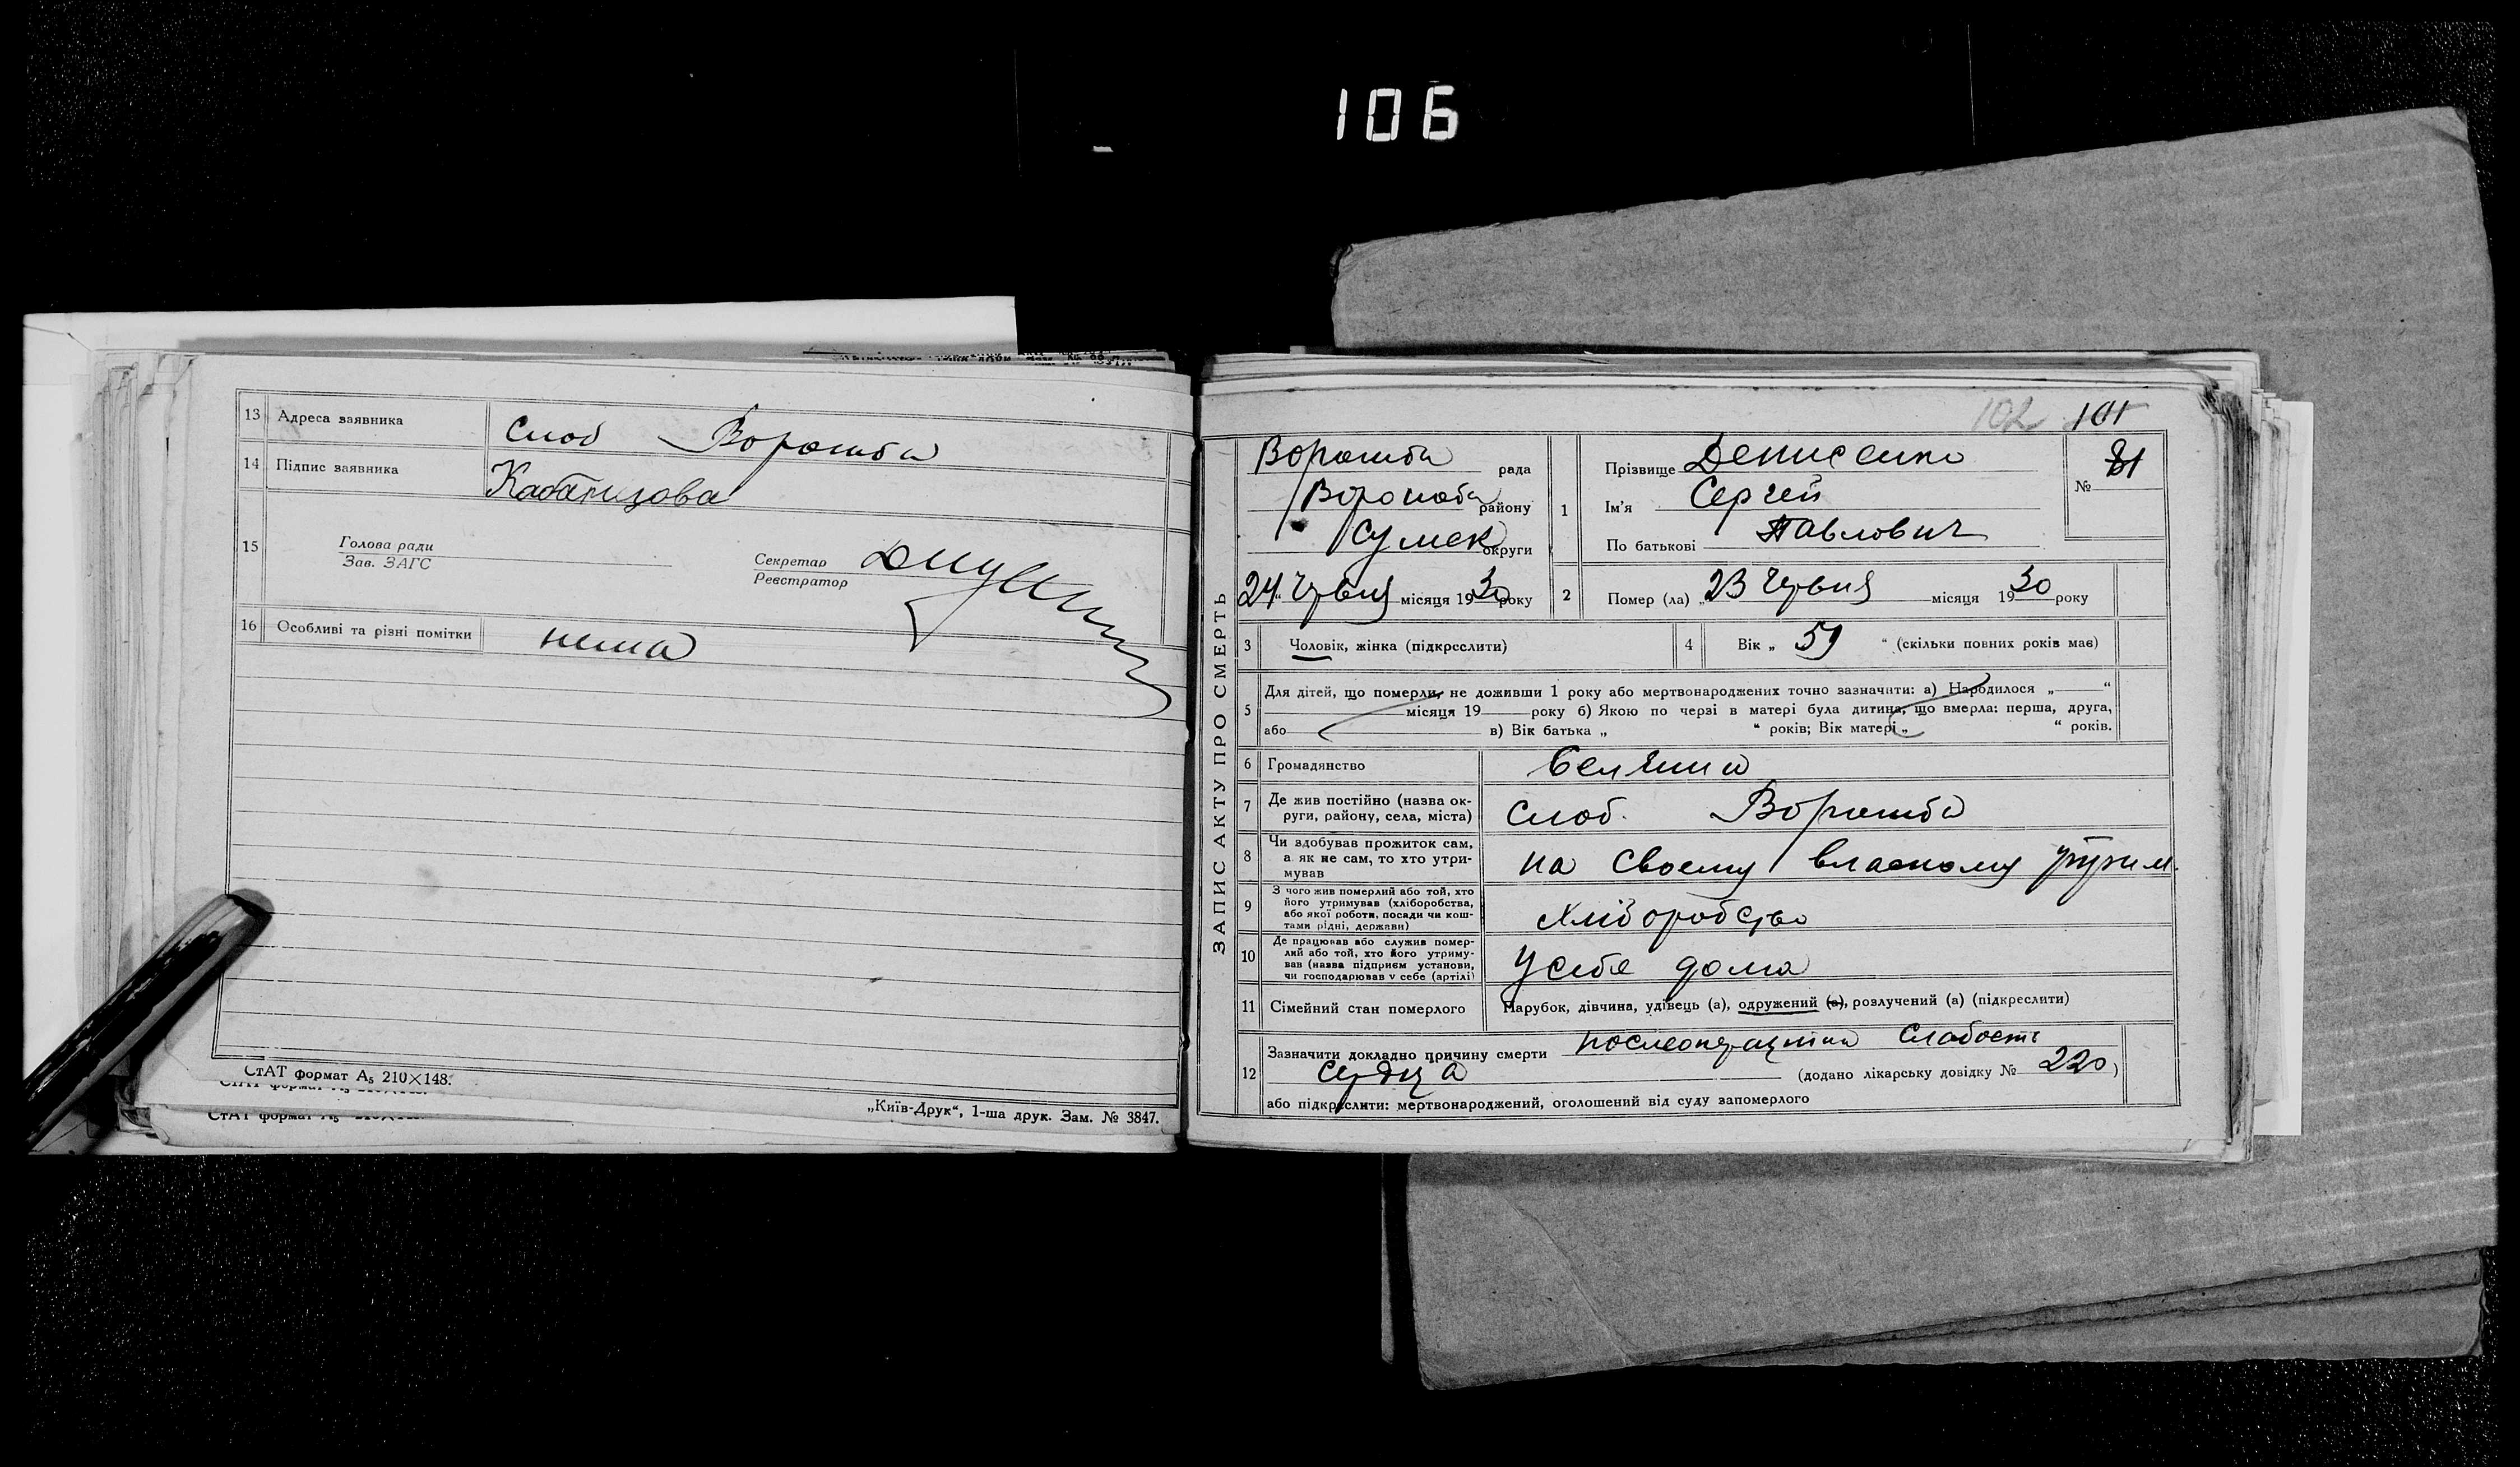 106
13 Адреса заявника Слоб Ворожба
14 Підпис заявника
15 Голова ради
Зав. ЗАГС
Секретар
Реєстратор
16 Особливі та різні помітки нема
СтАТ формат А5 210×148.
„Київ-Друк“, 1-ша друк. Зам. № 3847.
102 101
ЗАПИС АКТУ ПРО СМЕРТЬ
Ворожба рада
району
Сумск округи
24 Червня місяця 1930 року
1 Прізвище Денисенко
Ім'я Сергей
По батькові Павлович
№ 81
2 Помер (ла) „23 Червня місяця 1930 року
3 Чоловік, жінка (підкреслити)
4 Вік „ 59 “ (скільки повних років має)
5 Для дітей, що померли, не доживши 1 року або мертвонароджених точно зазначити: а) Народилося „ “
місяця 19 року б) Якою по черзі в матері була дитина, що вмерла: перша, друга,
або в) Вік батька „ “ років; Вік матері „ “ років.
6 Громадянство
7 Де жив постійно (назва ок-
руги, району, села, міста) Слоб. Ворожба
8 Чи здобував прожиток сам,
а як не сам, то хто утри-
мував на своему власному утрим.
9 З чого жив померлий або той, хто
його утримував (хліборобства,
або якої роботи, посади чи кош-
тами рідні, держави) Хліборобство
10 Де працював або служив помер-
лий або той, хто його утриму-
вав (назва підприєм установи,
чи господарював у себе (артілі) У себе дома
11 Сімейний стан померлого Парубок, дівчина, удівець (а), одружений (а), розлучений (а) (підкреслити)
12 Зазначити докладно причину смерти слабость
сердца (додано лікарську довідку № 220)
або підкреслити: мертвонароджений, оголошений від суду запомерлого